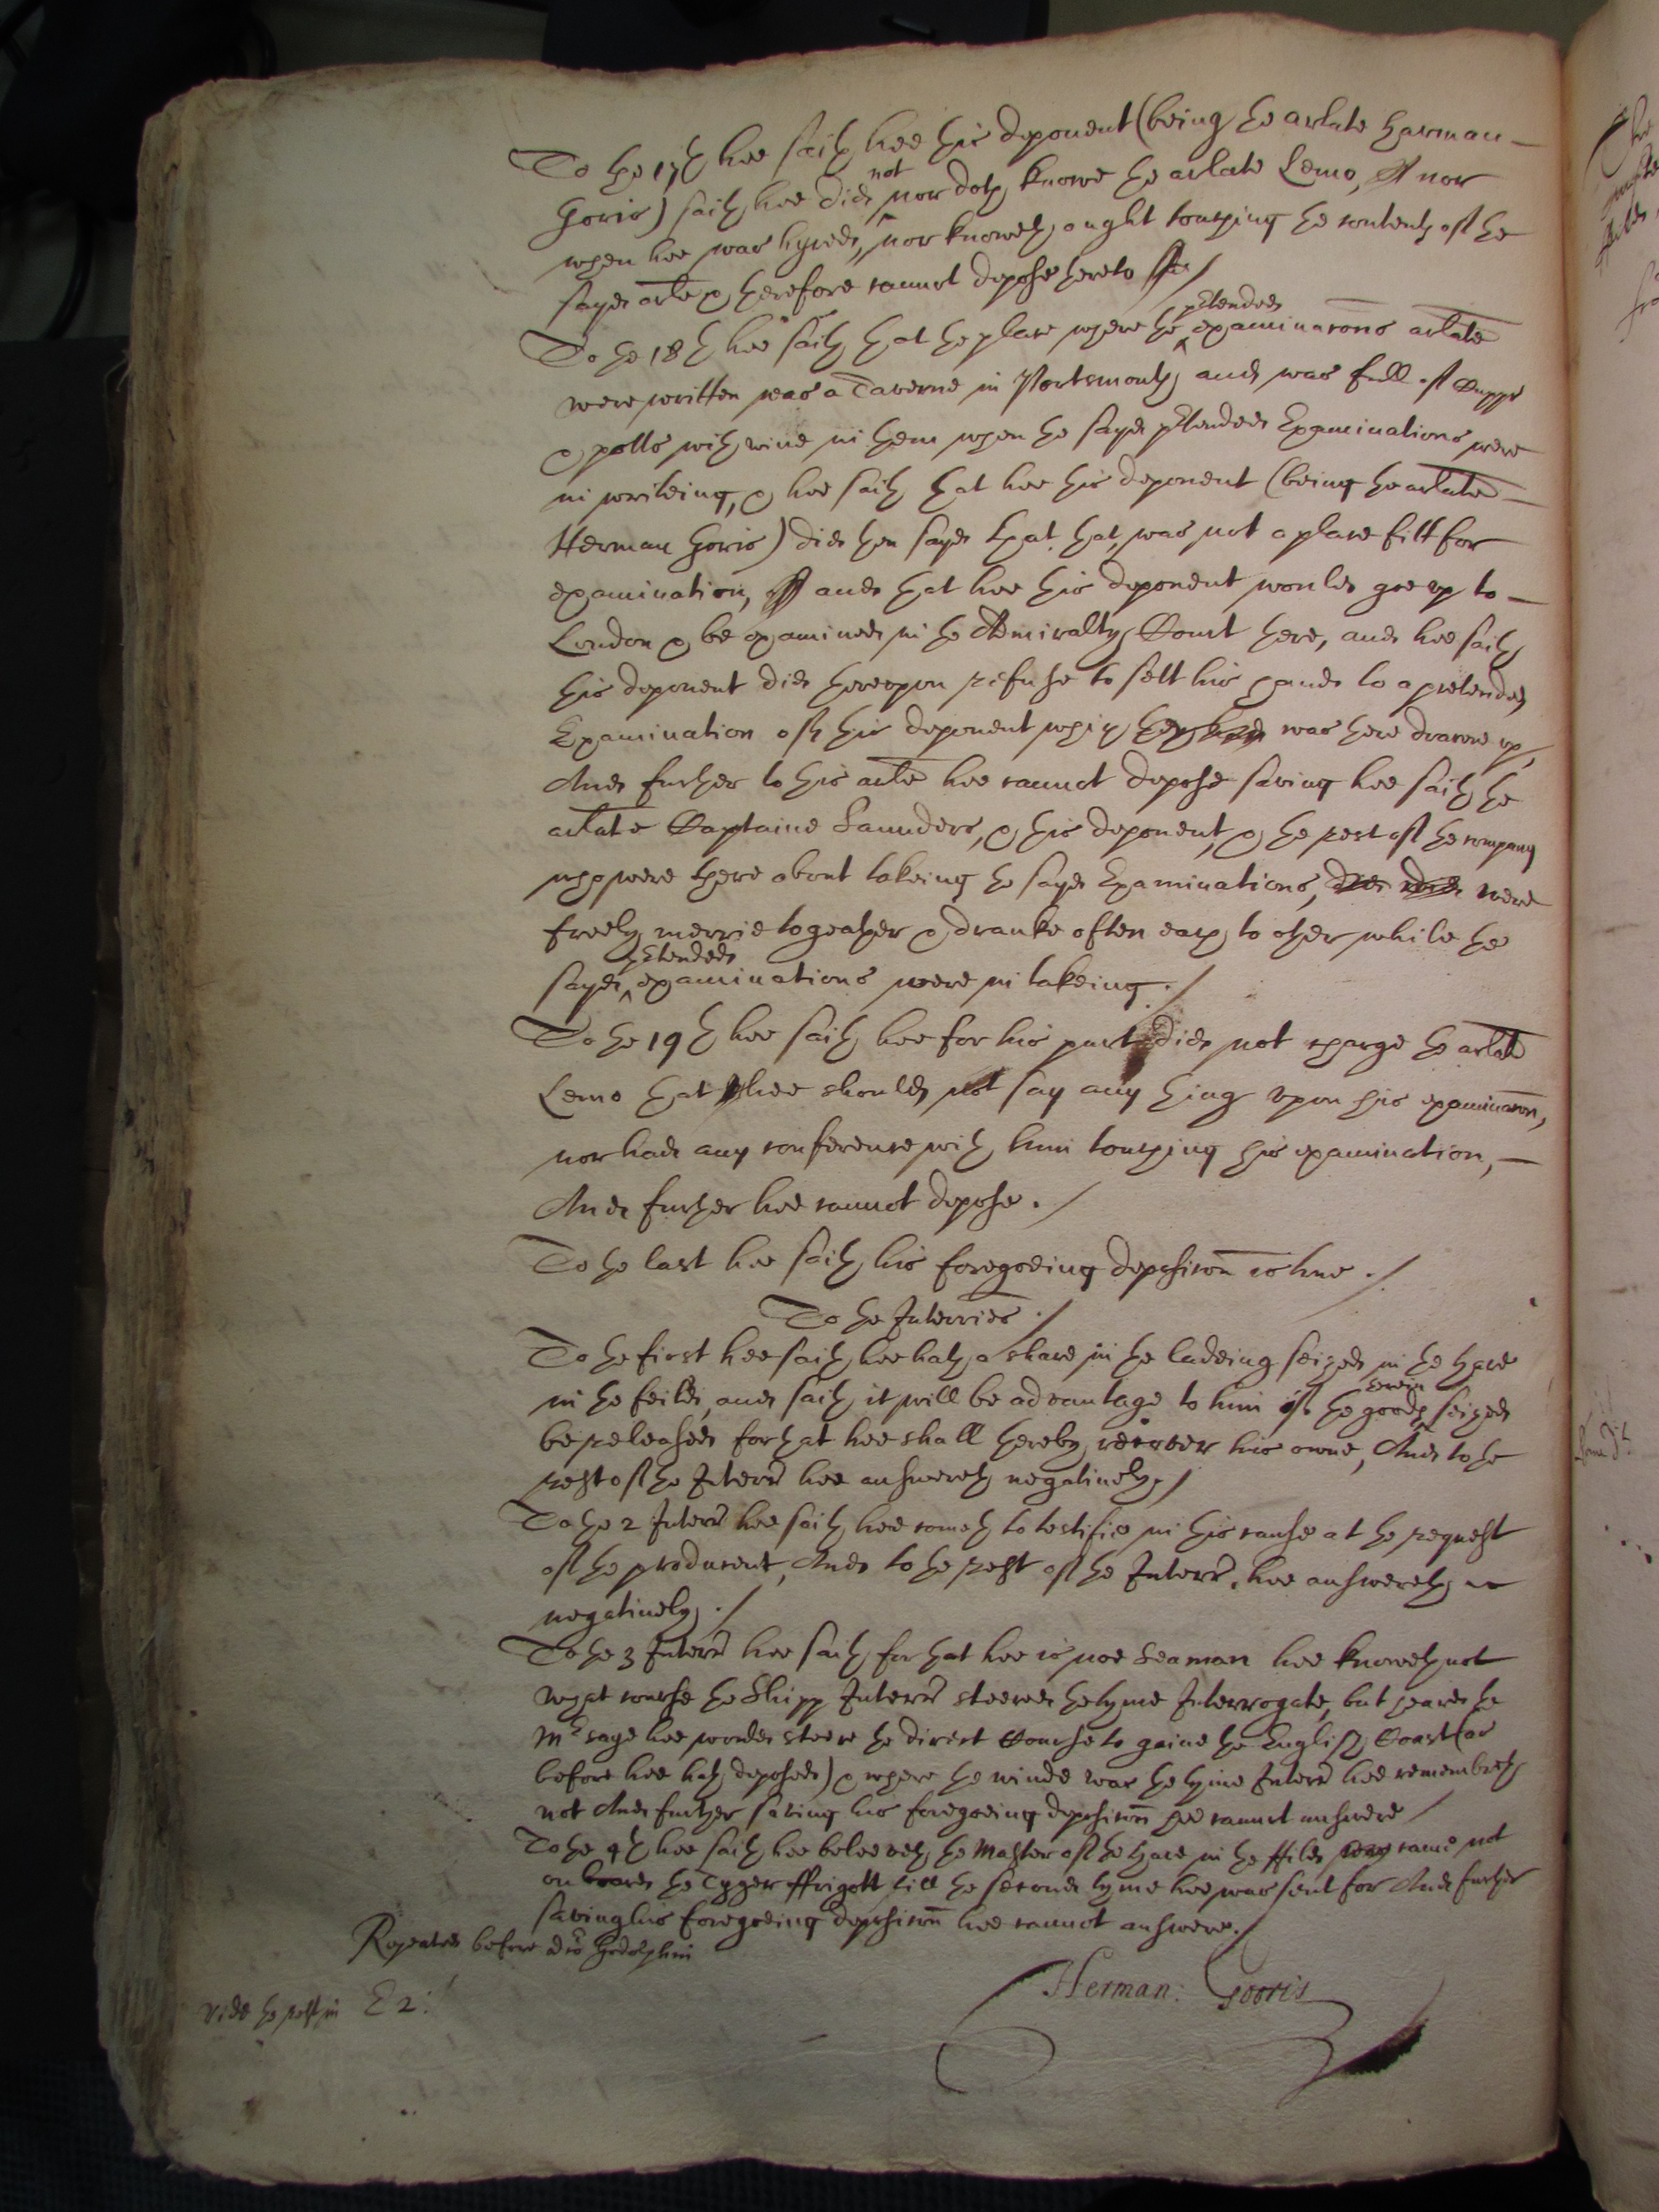 To the 17th hee saith hee this deponent (being the arlate Harman
Goris) saith hee did not nor doth knowe the arlate Lemo, nor
when hee was hyred, nor knoweth ought touching the contents of the
sayd arle & therefore cannot depose thereto /
To the 18th hee saith that the place where the pretended examinacons arlate
were written was a Taverne in Portsmouth, and was full of Cupps
& potts with wine in them when the sayd pretended Examinations were
in writeing, & hee saith that hee this deponent (being the arlate
Herman Goris) did then saye that that was not a place fitt for
examination, and that hee this deponent would goe up to
London & be examined in the Admiralty Court there, and hee saith
this deponent did thereupon refuse to sett his hand to a pretended
Examination of this deponent which was there drawne up,
And further to this arle hee cannot depose saving hee saith the
arlate Captaine Saunders, & this deponent, & the rest of the company
who were there about takeing the sayd Examinations, were
freely merrie togeather & dranke often each to other while the
sayd pretended examinations were in takeing. /
To the 19th hee saith hee for his part did not charge the arlate
Lemo that hee should not say any thing upon his examinacon,
nor had any conference with him touching his examination,
And further hee cannot depose. /
To the last hee saith his foregoeing deposicon is true. /
To the Interries. /
To the first hee saith hee hath a share in the ladeing seized in the Hare
in the feild, and saith it will be advantage to him if the goods therein seized
be released for that hee shall thereby recover his owne, And to the
rest of the Interr hee answereth negatively. /
To the 2 Interr hee saith hee cometh to testifie in this cause at the request
of the producent, And to the rest of the Interr. hee answereth
negatively. /
To the 3 Interr hee saith for that hee is noe Seaman hee knoweth not
what course the Shipp Interr steered the tyme Interrogate, but heard the
Mr saye hee would steere the direct Course to gaine the English Coast (as
before hee hath deposed) & where the winde was the tyme Interr hee remembreth
not And further saving his foregoeing deposicon hee cannot answere /
To the 4th hee saith hee beleeveth the Master of the Hare in the ffild came not
on board the Tyger ffrigott till the second tyme hee was sent for And further
saving his foregoeing deposicon hee cannot answere. /
Repeated before dr Godolphin
Herman: Gooris
vide the rest in E 2: